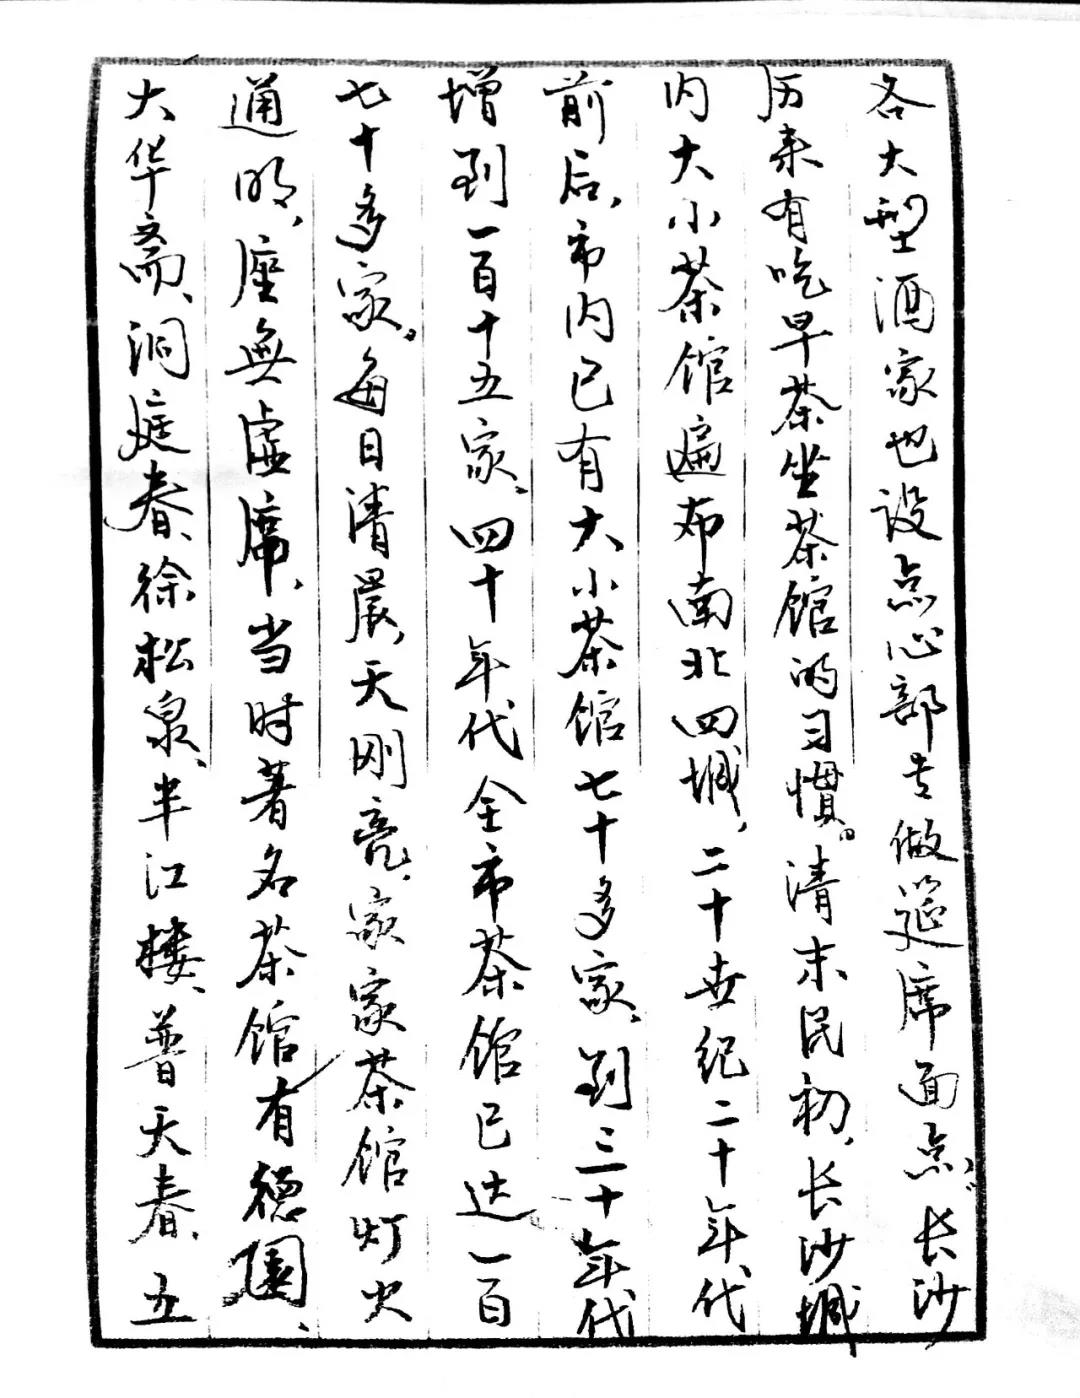 各大型酒家也设点心部专做筵席面点。长沙
历来有吃早茶坐茶馆的习惯。清末民初，长沙城
内大小茶馆遍布南北四城，二十世纪二十年代
前后，市内已有大小茶馆七十多家，到三十年代
增到一百十五家，四十年代全市茶馆已达一百
七十多家。每日清晨，天刚亮，家家茶馆灯火
通明，座無虚席，当时著名茶馆有德園、
大华斋、洞庭春、徐松泉、半江楼、普天春、五